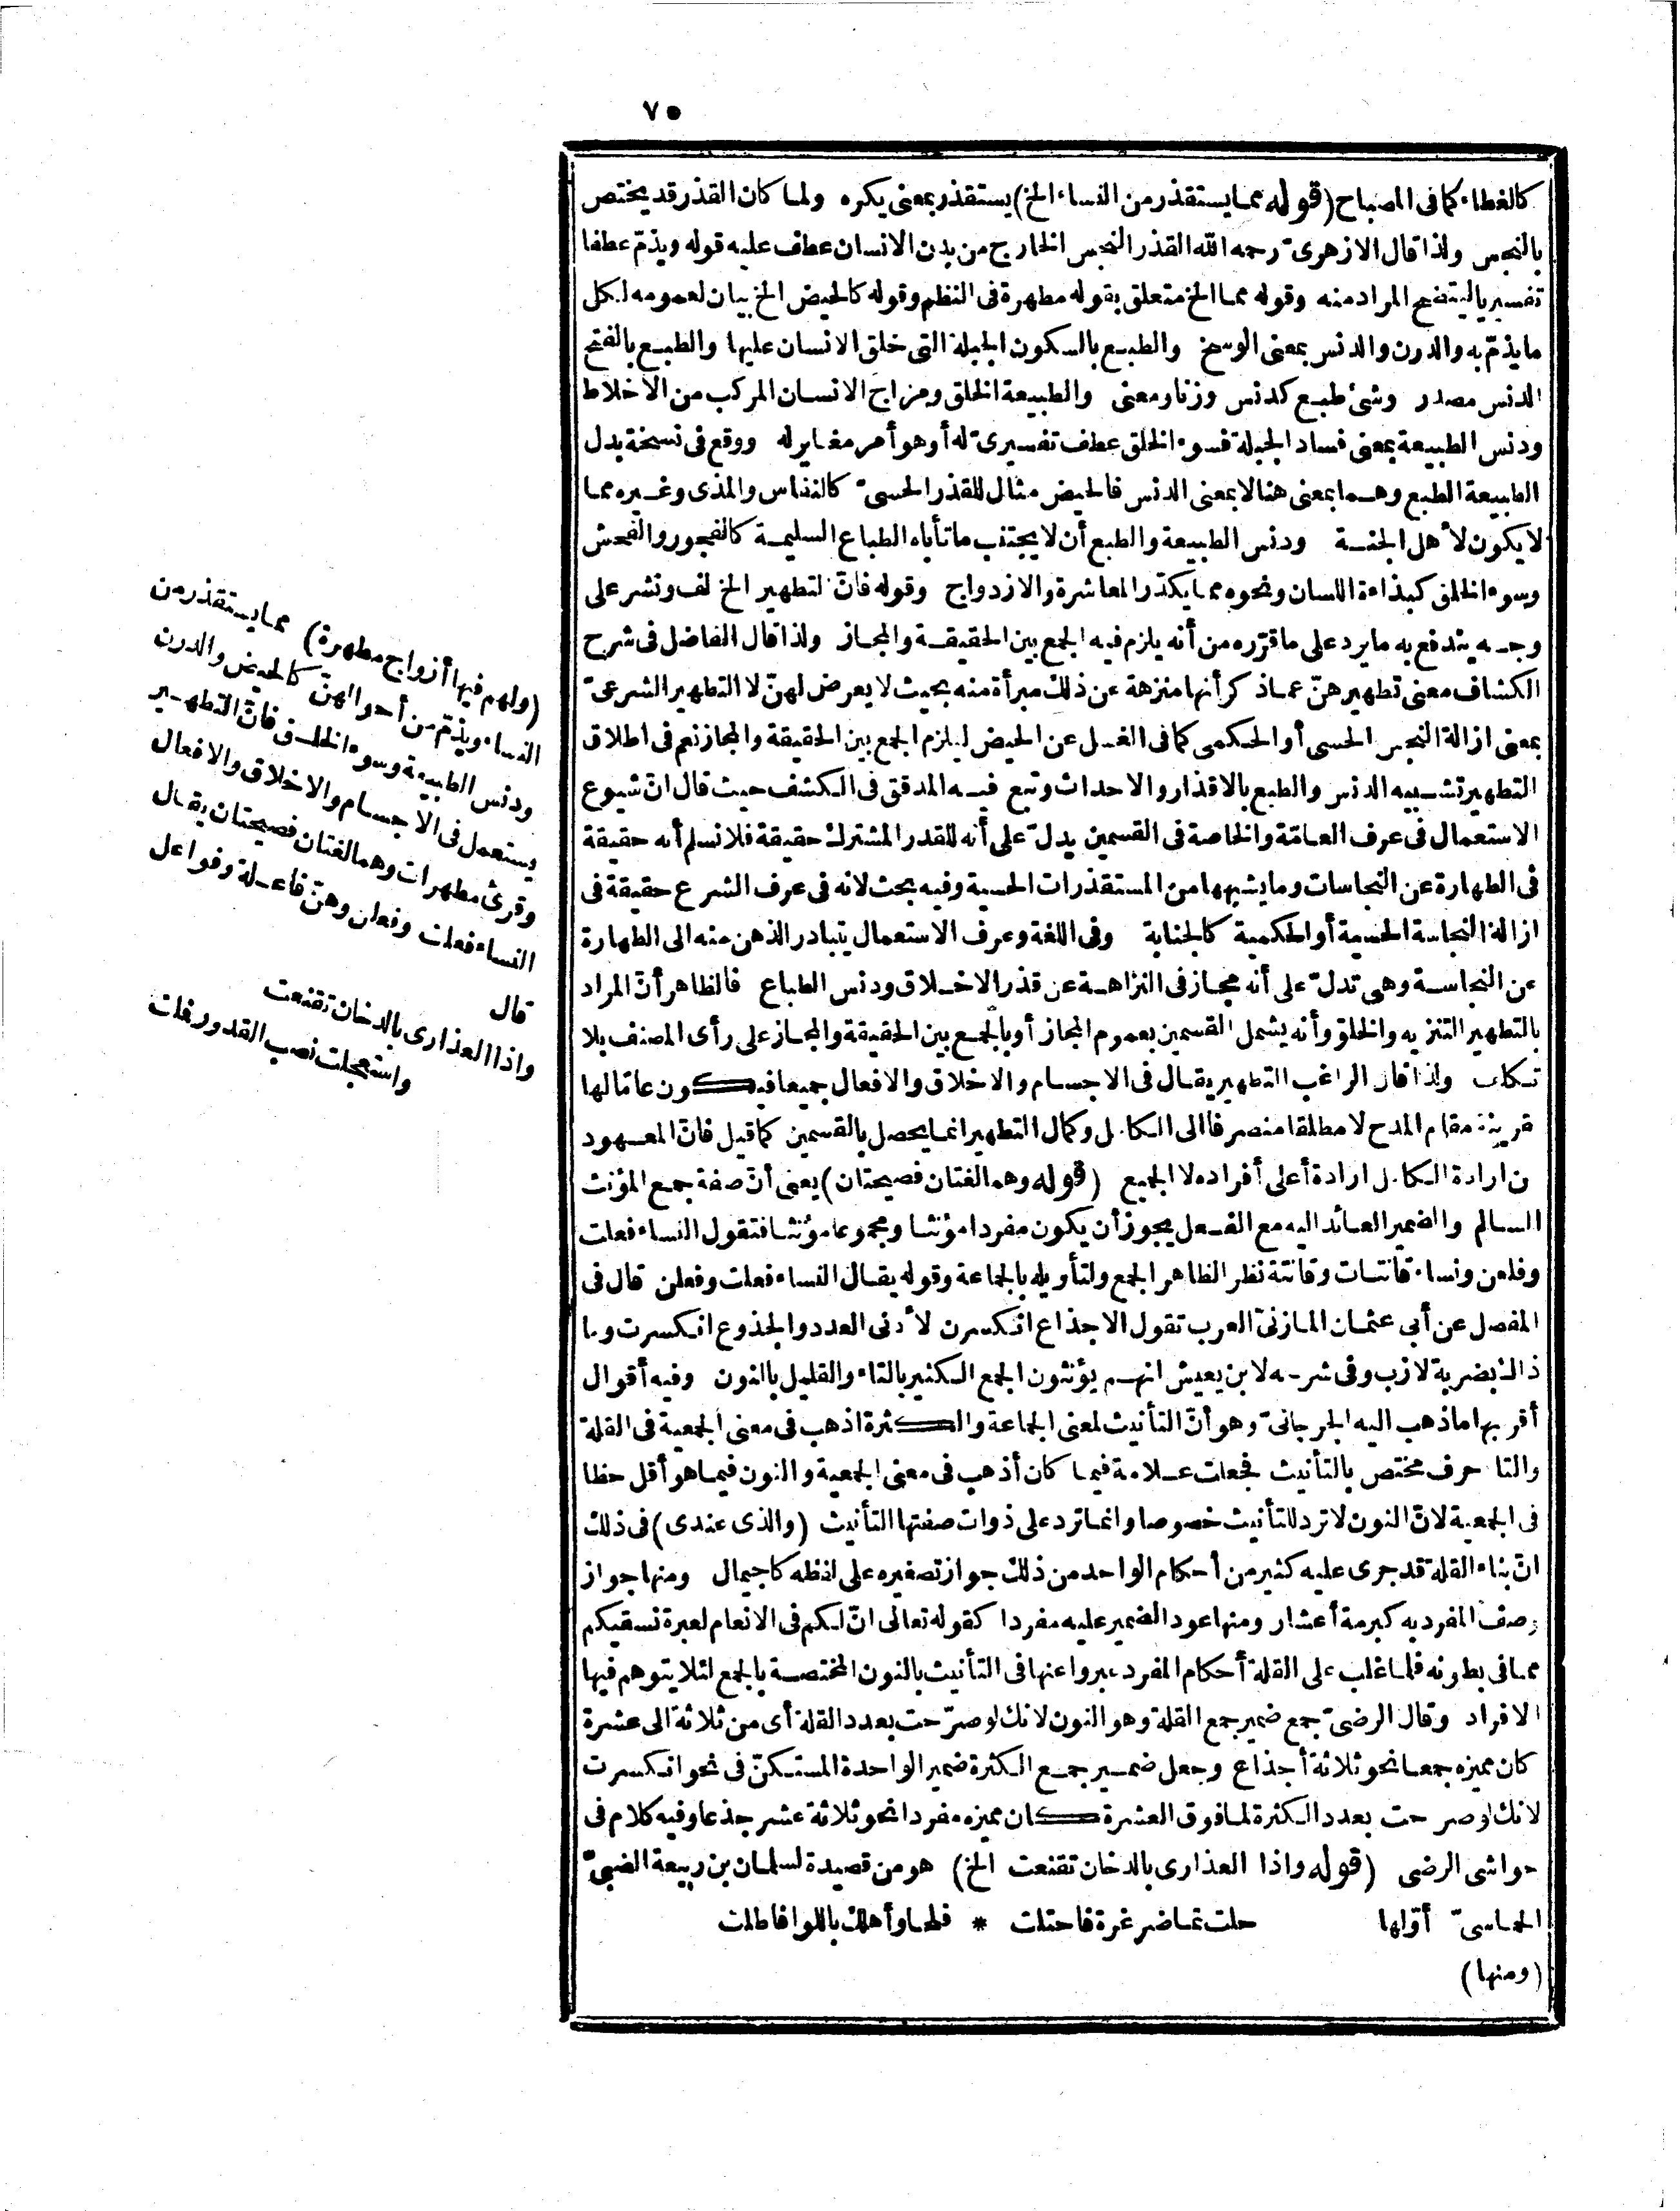 ٧٥
كالغطاء كما فى المصباح (قوله مما يستقذر من النساء الخ) يستقذر بمعنى يكره ولما كان القذر قد يختص
بالنجس ولذا قال الازهرىّ رحمه الله القذر النجس الخارج من بدن الانسان عطف عليه قوله ويذمّ عطفا
تفسيريا ليتضح المراد منه وقوله مما الخ متعلق بقوله مطهرة فى النظم وقوله كالحيض الخ بيان لعمومه لكل
ما يذمّ به والدرن والدنس بمعنى الوسخ والطبع بالسكون الجبلة التى خلق الانسان عليها والطبع بالفتح
الدنس مصدر وشئ طبع كدنس وزنا ومعنى والطبيعة الخلق ومزاج الانسان المركب من الاخلاط
ودنس الطبيعة بمعنى فساد الجبلة فسوء الخلق عطف تفسيرىّ له أو هو أمر مغاير له ووقع فى نسخة بدل
الطبيعة الطبع وهما بمعنى هنا لا بمعنى الدنس فالحيض مثال للقذر الحسىّ كالنفاس والمذى وغيره مما
لا يكون لأهل الجنة ودنس الطبيعة والطبع أن لا يجتنب ما تأباه الطباع السليمة كالفجور والفحش
وسوء الخلق كبذاءة اللسان ونحوه مما يكدّر المعاشرة والازدواج وقوله فانّ التطهير الخ لف ونشر على
وجه يندفع به ما يرد على ما قرّره من أنه يلزم فيه الجمع بين الحقيقة والمجاز ولذا قال الفاضل فى شرح
الكشاف معنى تطهيرهنّ عما ذكر أنها منزهة عن ذلك مبرأة منه بحيث لا يعرض لهنّ لا التطهير الشرعىّ
بمعنى ازالة النجس الحسى أو الحكمى كما فى الغسل عن الحيض ليلزم الجمع بين الحقيقة والمجاز نعم فى اطلاق
التطهير تشبيه الدنس والطبع بالاقذار والاحداث وتبع فيه المدقق فى الكشف حيث قال انّ شيوع
الاستعمال فى عرف العامّة والخاصة فى القسمين يدلّ على أنه للقدر المشترك حقيقة فلا نسلم أنه حقيقة
فى الطهارة عن النجاسات وما يشبهها من المستقذرات الحسية وفيه بحث لانه فى عرف الشرع حقيقة فى
ازالة النجاسة الحسية أو الحكمية كالجنابة وفى اللغة وعرف الاستعمال يتبادر الذهن منه الى الطهارة
عن النجاسة وهى تدلّ على أنه مجاز فى النزاهة عن قذر الاخلاق ودنس الطباع فالظاهر أنّ المراد
بالتطهير التنزيه والخلق وأنه يشمل القسمين بعموم المجاز أو بالجمع بين الحقيقة والمجاز على رأى المصنف بلا
تكلف ولذا قال الراغب التطهير يقال فى الاجسام والاخلاق والافعال جميعا فيكون عامّا لها
قرينة مقام المدح لا مطلقا منصرفا الى الكامل وكمال التطهير انما يحصل بالقسمين كما قيل فانّ المعهود
من ارادة الكامل ارادة أعلى أفراده لا الجميع (قوله وهما لغتان فصيحتان) يعنى أنّ صفة جمع المؤنث
السالم والضمير العائد اليه مع الفعل يجوز أن يكون مفردا مؤنثا ومجموعا مؤنثا فتقول النساء فعلت
وفلعن ونساء قانتات وقانتة نظر الظاهر الجمع ولتأويله بالجماعة وقوله يقال النساء فعلت وفعلن قال فى
المفصل عن أبى عثمان المازنىّ العرب تقول الاجذاع انكسرن لأدنى العدد والجذوع انكسرت وما
ذاك بضربة لازب وفى شرحه لابن يعيش انهم يؤنثون الجمع الكثير بالتاء والقليل بالنون وفيه أقوال
أقربها ما ذهب اليه الجرجانىّ وهو أنّ التأنيث لمعنى الجماعة والكثرة اذهب فى معنى الجمعية فى القلة
والتاء حرف مختص بالتأنيث فجعلت علامة فيما كان أذهب فى معنى الجمعية والنون فيما هو أقل حظا
فى الجمعية لانّ النون لا ترد للتأنيث خصوصا وانما ترد على ذوات صفتها التأنيث (والذى عندى) فى ذلك
انّ بناء القلة قد جرى عليه كثير من أحكام الواحد من ذلك جواز تصغيره على لفظه كاجيمال ومنها جواز
وصف المفرد به كبرمة أعشار ومنها عود الضمير عليه مفردا كقوله تعالى انّ لكم فى الانعام لعبرة نسقيكم
مما فى بطونه فلما غلب على القلة أحكام المفرد عبروا عنها فى التأنيث بالنون المختصة بالجمع لئلا يتوهم فيها
الافراد وقال الرضىّ جمع ضمير جمع القلة وهو النون لانك لو صرّحت بعدد القلة أى من ثلاثة الى عشرة
كان مميزه جمعا نحو ثلاثة أجذاع وجعل ضمير جمع الكثرة ضمير الواحدة المستكنّ فى نحو انكسرت
لانك لو صرحت بعدد الكثرة لما فوق العشرة كان مميزه مفردا نحو ثلاثة عشر جذعا وفيه كلام فى
حواشى الرضى (قوله واذا العذارى بالدخان تقنعت الخ) هو من قصيدة لسلمان بن ربيعة الضبىّ
الحماسىّ أوّلها حلت تماضر غربة فاحتلت * فلجا وأهلك باللوا فالحلت
(ومنها)
(ولهم فيها أزواج مطهرة) مما يستقذر من
النساء ويذمّ من أحوالهنّ كالحيض والدرن
ودنس الطبيعة وسوء الخلق فانّ التطهير
يستعمل فى الاجسام والاخلاق والافعال
وقرئ مطهرات وهما لغتان فصيحتان يقال
النساء فعلت وفعلن وهنّ فاعلة وفواعل
قال
واذا العذارى بالدخان تقنعت
واستعجلت نصب القدور فملت